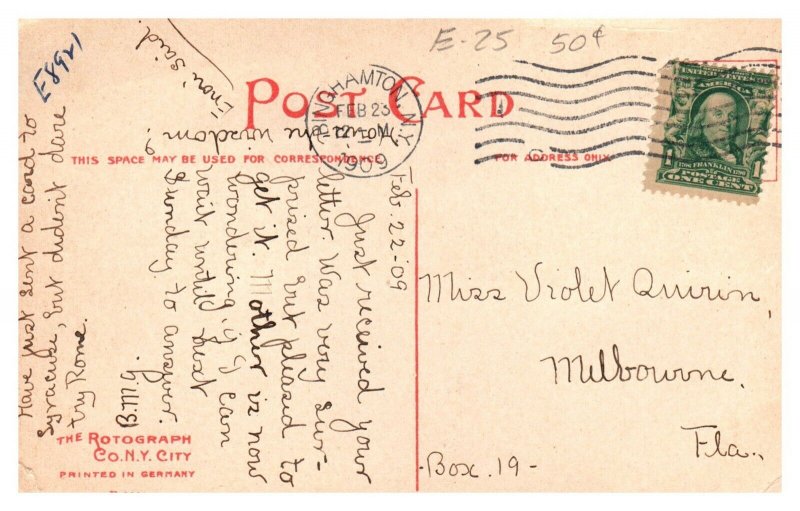 E-25 50¢
E8921
POST CARD
THIS SPACE MAY BE USED FOR CORRESPONDENCE
FOR ADDRESS ONLY
BINGHAMTON, N.Y.
FEB 23
12-M
1909
AMERICA
FRANKLIN
POSTAGE
ONE CENT
Feb. 22-09
Just received your
letter. Was very sur-
prised but pleased to
get it. Mother is now
wondering if I can
wait until next
Sunday to answer.
B.M.G.
Have just sent a card to
Syracuse, but didn't dare
try Rome.
Enou' said
Miss Violet Quirin,
Melbourne,
Fla.,
-Box. 19-
THE ROTOGRAPH
CO. N.Y. CITY
PRINTED IN GERMANY